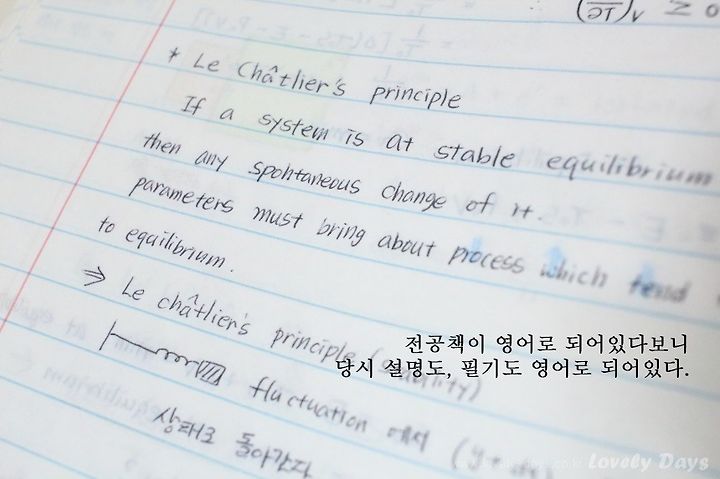 (∂T)v ≥ 0
* Le Châtlier's principle
If a system is at stable equilibrium
then any spontaneous change of it.
parameters must bring about process which tend
to equilibrium.
⇒ Le châtlier's principle
fluctuation 에서
상태로 돌아간다
전공책이 영어로 되어있다보니
당시 설명도, 필기도 영어로 되어있다.
Lovely Days